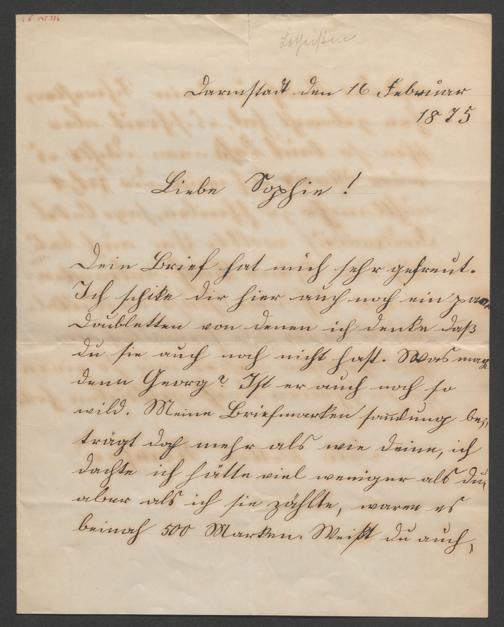 Darmstadt den 16 Februar
1875
Liebe Sophie!
Dein Brief hat mich sehr gefreut.
Ich schike dir hier auch noch ein paar
Doubletten von denen ich denke daß
du sie auch noch nicht hast. Was mag
denn Georg? Ist er auch noch so
wild. Meine Briefmarken samlung be-
trägt doch mehr als wie deine, ich
dachte ich hätte viel weniger als du,
aber als ich sie zählte, waren es
beinah 500 Marken. Weißt du auch,